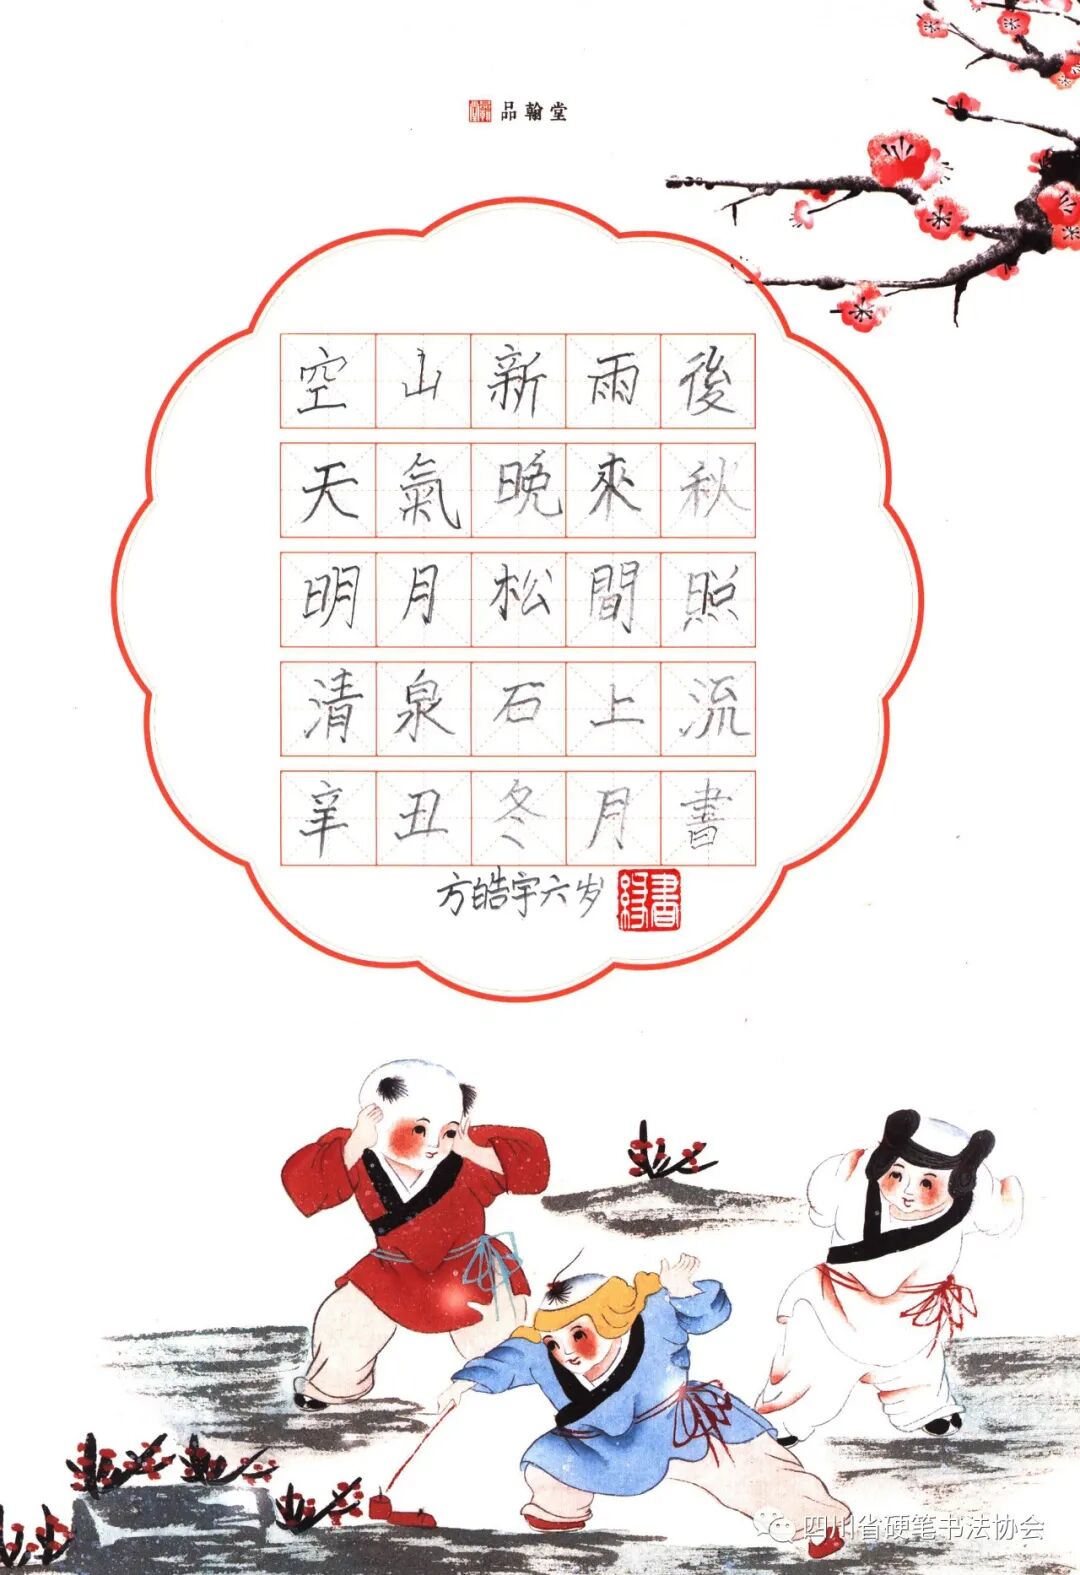 品翰堂
空山新雨後
天氣晚來秋
明月松間照
清泉石上流
辛丑冬月書
方皓宇六岁
四川省硬笔书法协会